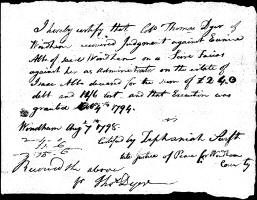 I hereby certify that Col Thomas Dyer of
Windham recovered Judgment against Eunice
Abb of said Windham on a Scire Facias
against her as Administratrix on the estate of
Isaac Abb deceased for the sum of £2.4.0
debt and 12/6 cost, and that Execution was
granted 4th 1794.
Windham Augt 7th 1798.
Certifed by Zephaniah Swift
late Justice of Peace for Windham
County
Received the above
pr Thos Dyer